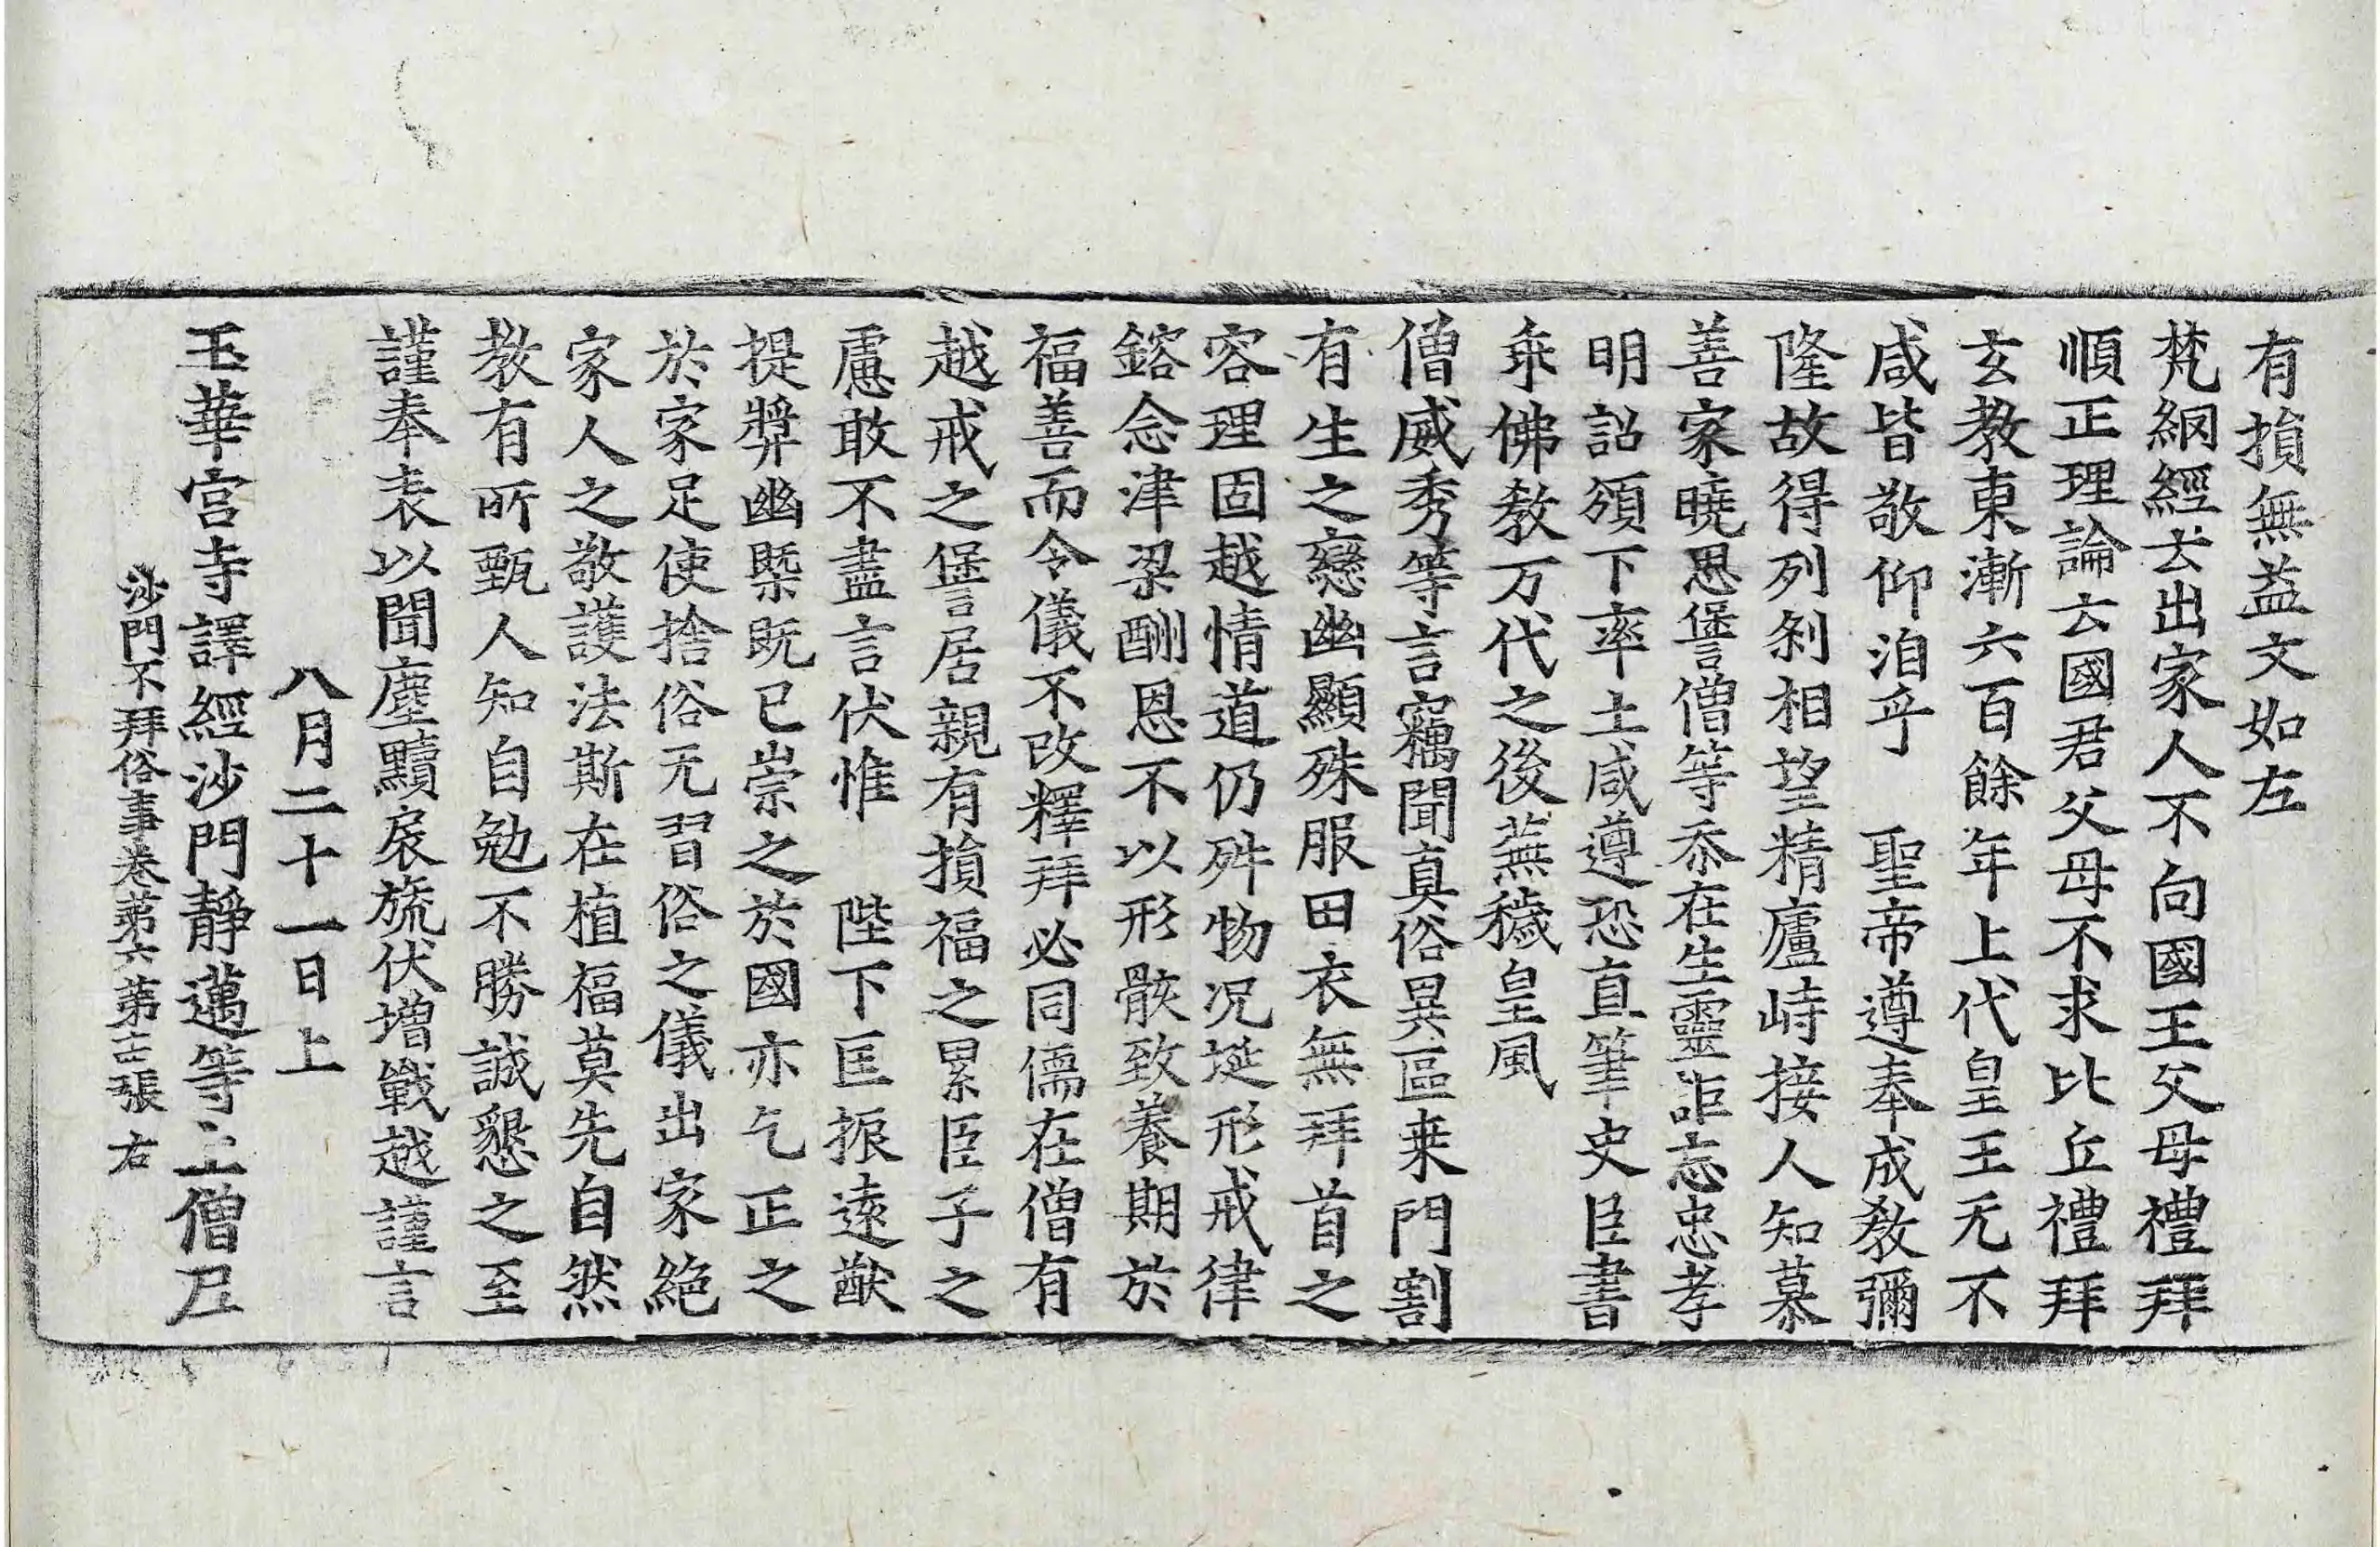 有損無益文如左
梵網經云出家人不向國王父母禮拜
順正理論云國君父母不求比丘禮拜
玄教東漸六百餘年上代皇王无不
咸皆敬仰洎乎　聖帝遵奉成教彌
隆故得列剎相望精廬峙接人知慕
善家曉思𠎝僧等忝在生靈詎忘忠孝
明詔頒下率土咸遵恐直筆史臣書
乖佛教万代之後蕪穢皇風
僧威秀等言竊聞真俗異區来門割
有生之戀幽顯殊服田衣無拜首之
容理固越情道仍舛物况埏形戒律
鎔念津梁酬恩不以形骸致養期於
福善而令儀不改釋拜必同儒在僧有
越戒之𠎝居親有損福之累臣子之
慮敢不盡言伏惟　陛下匡振遠猷
提獎幽槩既已崇之於國亦乞正之
於家足使捨俗无習俗之儀出家絕
家人之敬護法斯在植福莫先自然
教有所甄人知自勉不勝誠懇之至
謹奉表以聞塵黷扆旒伏增戰越謹言
八月二十一日上
玉華宮寺譯經沙門靜邁等上僧尼
沙門不拜俗事卷第六　第十一張　右